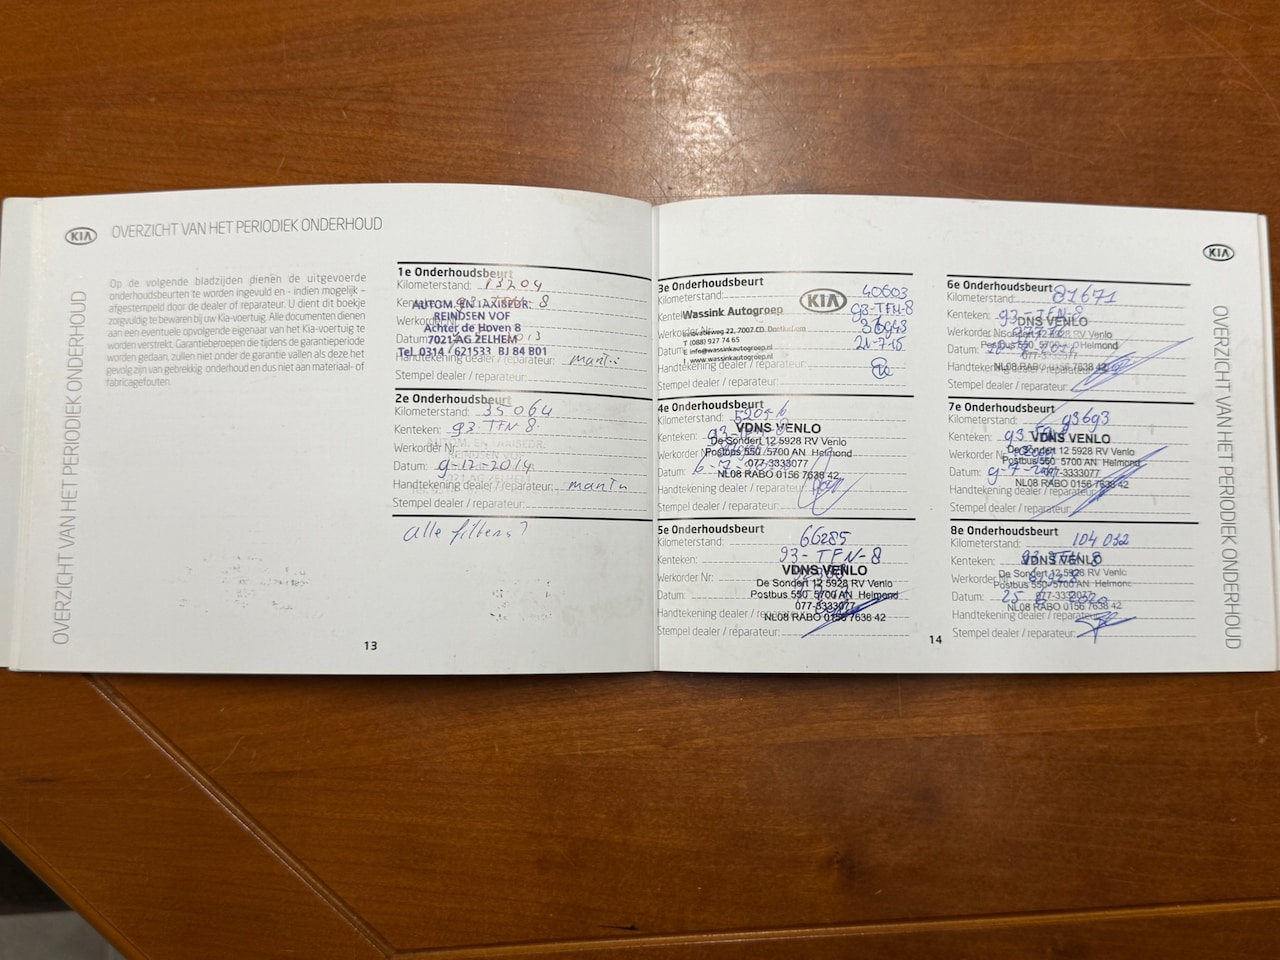 KIA OVERZICHT VAN HET PERIODIEK ONDERHOUD
OVERZICHT VAN HET PERIODIEK ONDERHOUD
Op de volgende bladzijden dienen de uitgevoerde
onderhoudsbeurten te worden ingevuld en - indien mogelijk -
afgestempeld door de dealer of reparateur. U dient dit boekje
zorgvuldig te bewaren bij uw Kia-voertuig. Alle documenten dienen
aan een eventuele opvolgende eigenaar van het Kia-voertuig te
worden verstrekt. Garantieberoepen die tijdens de garantieperiode
worden gedaan, zullen niet onder de garantie vallen als deze het
gevolg zijn van gebrekkig onderhoud en dus niet aan materiaal- of
fabricagefouten.
1e Onderhoudsbeurt
Kilometerstand: 13204
AUTOM. EN TAXIBEDR.
REINDSEN VOF
Achter de Hoven 8
7021 AG ZELHEM
Tel. 0314 / 621533 BJ 84 B01
Handtekening dealer / reparateur:
Stempel dealer / reparateur:
2e Onderhoudsbeurt
Kilometerstand: 35064
Kenteken: 93-TFN-8
Werkorder Nr:
AUTOM. EN TAXIBEDR.
REINDSEN VOF
Datum: 9-12-2014
Handtekening dealer / reparateur:
Stempel dealer / reparateur:
alle filters?
13
3e Onderhoudsbeurt
Kilometerstand: 40603
KIA
93-TFN-8
Wassink Autogroep
36943
Innovatieweg 22, 7007 CD Doetinchem
T (088) 927 74 65
21-7-15
E info@wassinkautogroep.nl
I www.wassinkautogroep.nl
Handtekening dealer / reparateur:
Stempel dealer / reparateur:
4e Onderhoudsbeurt
Kilometerstand:
Kenteken: 93-TFN-8
VDNS VENLO
De Sondert 12 5928 RV Venlo
Werkorder Nr:
Postbus 550 5700 AN Helmond
Datum:
077-3333077
NL08 RABO 0156 7638 42
Handtekening dealer / reparateur:
Stempel dealer / reparateur:
5e Onderhoudsbeurt
Kilometerstand: 66285
Kenteken: 93-TFN-8
Werkorder Nr:
VDNS VENLO
De Sondert 12 5928 RV Venlo
Datum:
Postbus 550 5700 AN Helmond
077-3333077
Handtekening dealer / reparateur:
NL08 RABO 0156 7638 42
Stempel dealer / reparateur:
14
KIA
6e Onderhoudsbeurt
Kilometerstand: 81671
Kenteken: 93-TFN-8
VDNS VENLO
Werkorder Nr:
De Sondert 12 5928 RV Venlo
Datum:
Postbus 550 5700 AN Helmond
077-3333077
Handtekening dealer / reparateur:
NL08 RABO 0156 7638 42
Stempel dealer / reparateur:
7e Onderhoudsbeurt
Kilometerstand: 93693
Kenteken:
VDNS VENLO
Werkorder Nr:
De Sondert 12 5928 RV Venlo
Postbus 550 5700 AN Helmond
Datum:
077-3333077
NL08 RABO 0156 7638 42
Handtekening dealer / reparateur:
Stempel dealer / reparateur:
8e Onderhoudsbeurt
Kilometerstand: 104 032
Kenteken: 93-TFN-8
VDNS VENLO
Werkorder Nr:
De Sondert 12 5928 RV Venlo
Postbus 550 5700 AN Helmond
Datum:
077-3333077
NL08 RABO 0156 7638 42
Handtekening dealer / reparateur:
Stempel dealer / reparateur:
OVERZICHT VAN HET PERIODIEK ONDERHOUD